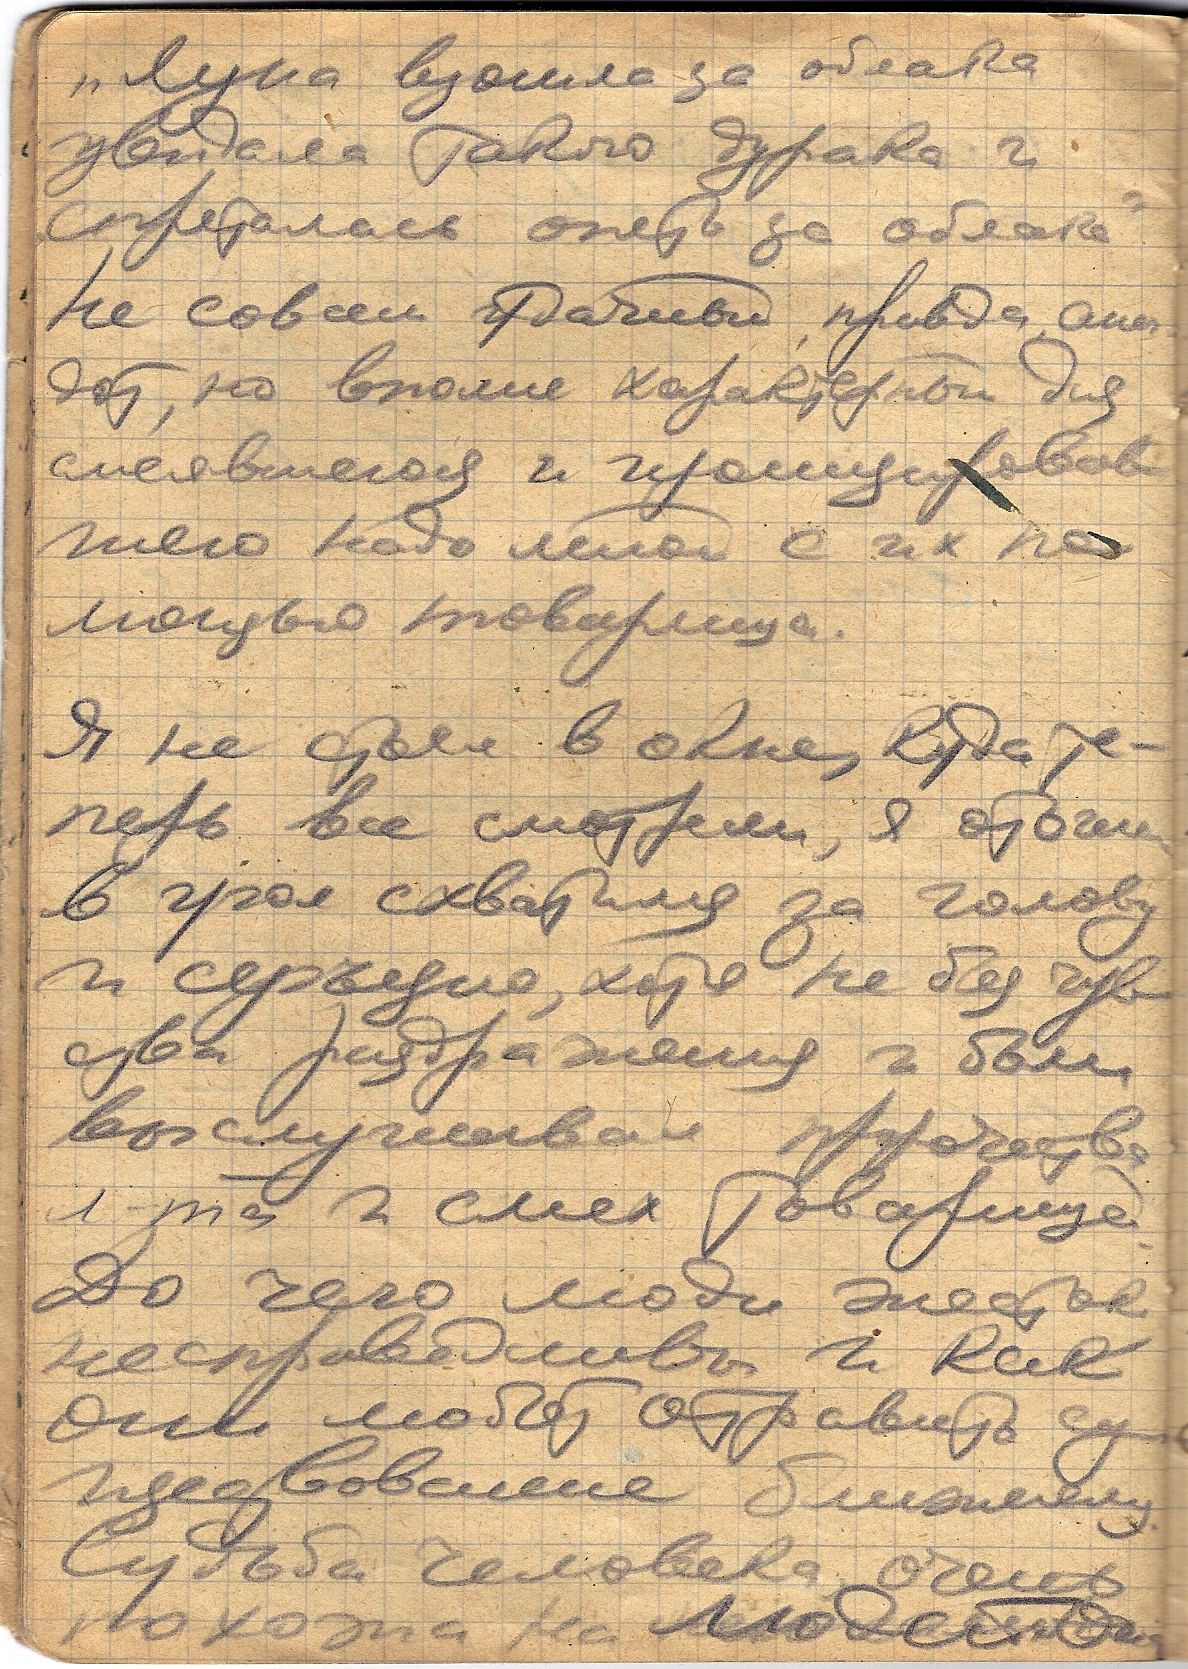 „Луна взошла за облака
увидала такого дурака и
спряталась опять за облака"
Не совсем удачный, правда, анек-
дот, но вполне характерный для
смеявшегося и иронизировав
шего надо мной с их по
мощью товарища.
Я не стоял в окне, куда те-
перь все смотрели, я отошел
в угол схватился за голову
и серьезно, хотя не без чув
ства раздражения и боли
выслушивал пророчества
л-та и смех товарища.
До чего люди жестоки
несправедливы и как
они любят отравить су-
ществование ближнему.
Судьба человека очень
похожа на